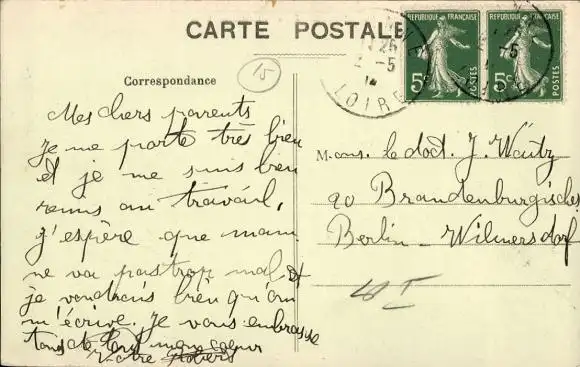 CARTE POSTALE
Correspondance
15
RÉPUBLIQUE FRANÇAISE
5c
POSTES
RÉPUBLIQUE FRANÇAISE
5c
POSTES
25
-5
LOIRE
Mes chers parents
je me porte très bien
et je me suis bien
remis au travail,
j'espère que mam
ne va pas trop mal et
je voudrais bien qu'on
m'écrive. Je vous embrasse
tous de tout mon coeur
Votre
Mons. le doct. J.
90 Brandenburgische
Berlin - Wilmersdorf